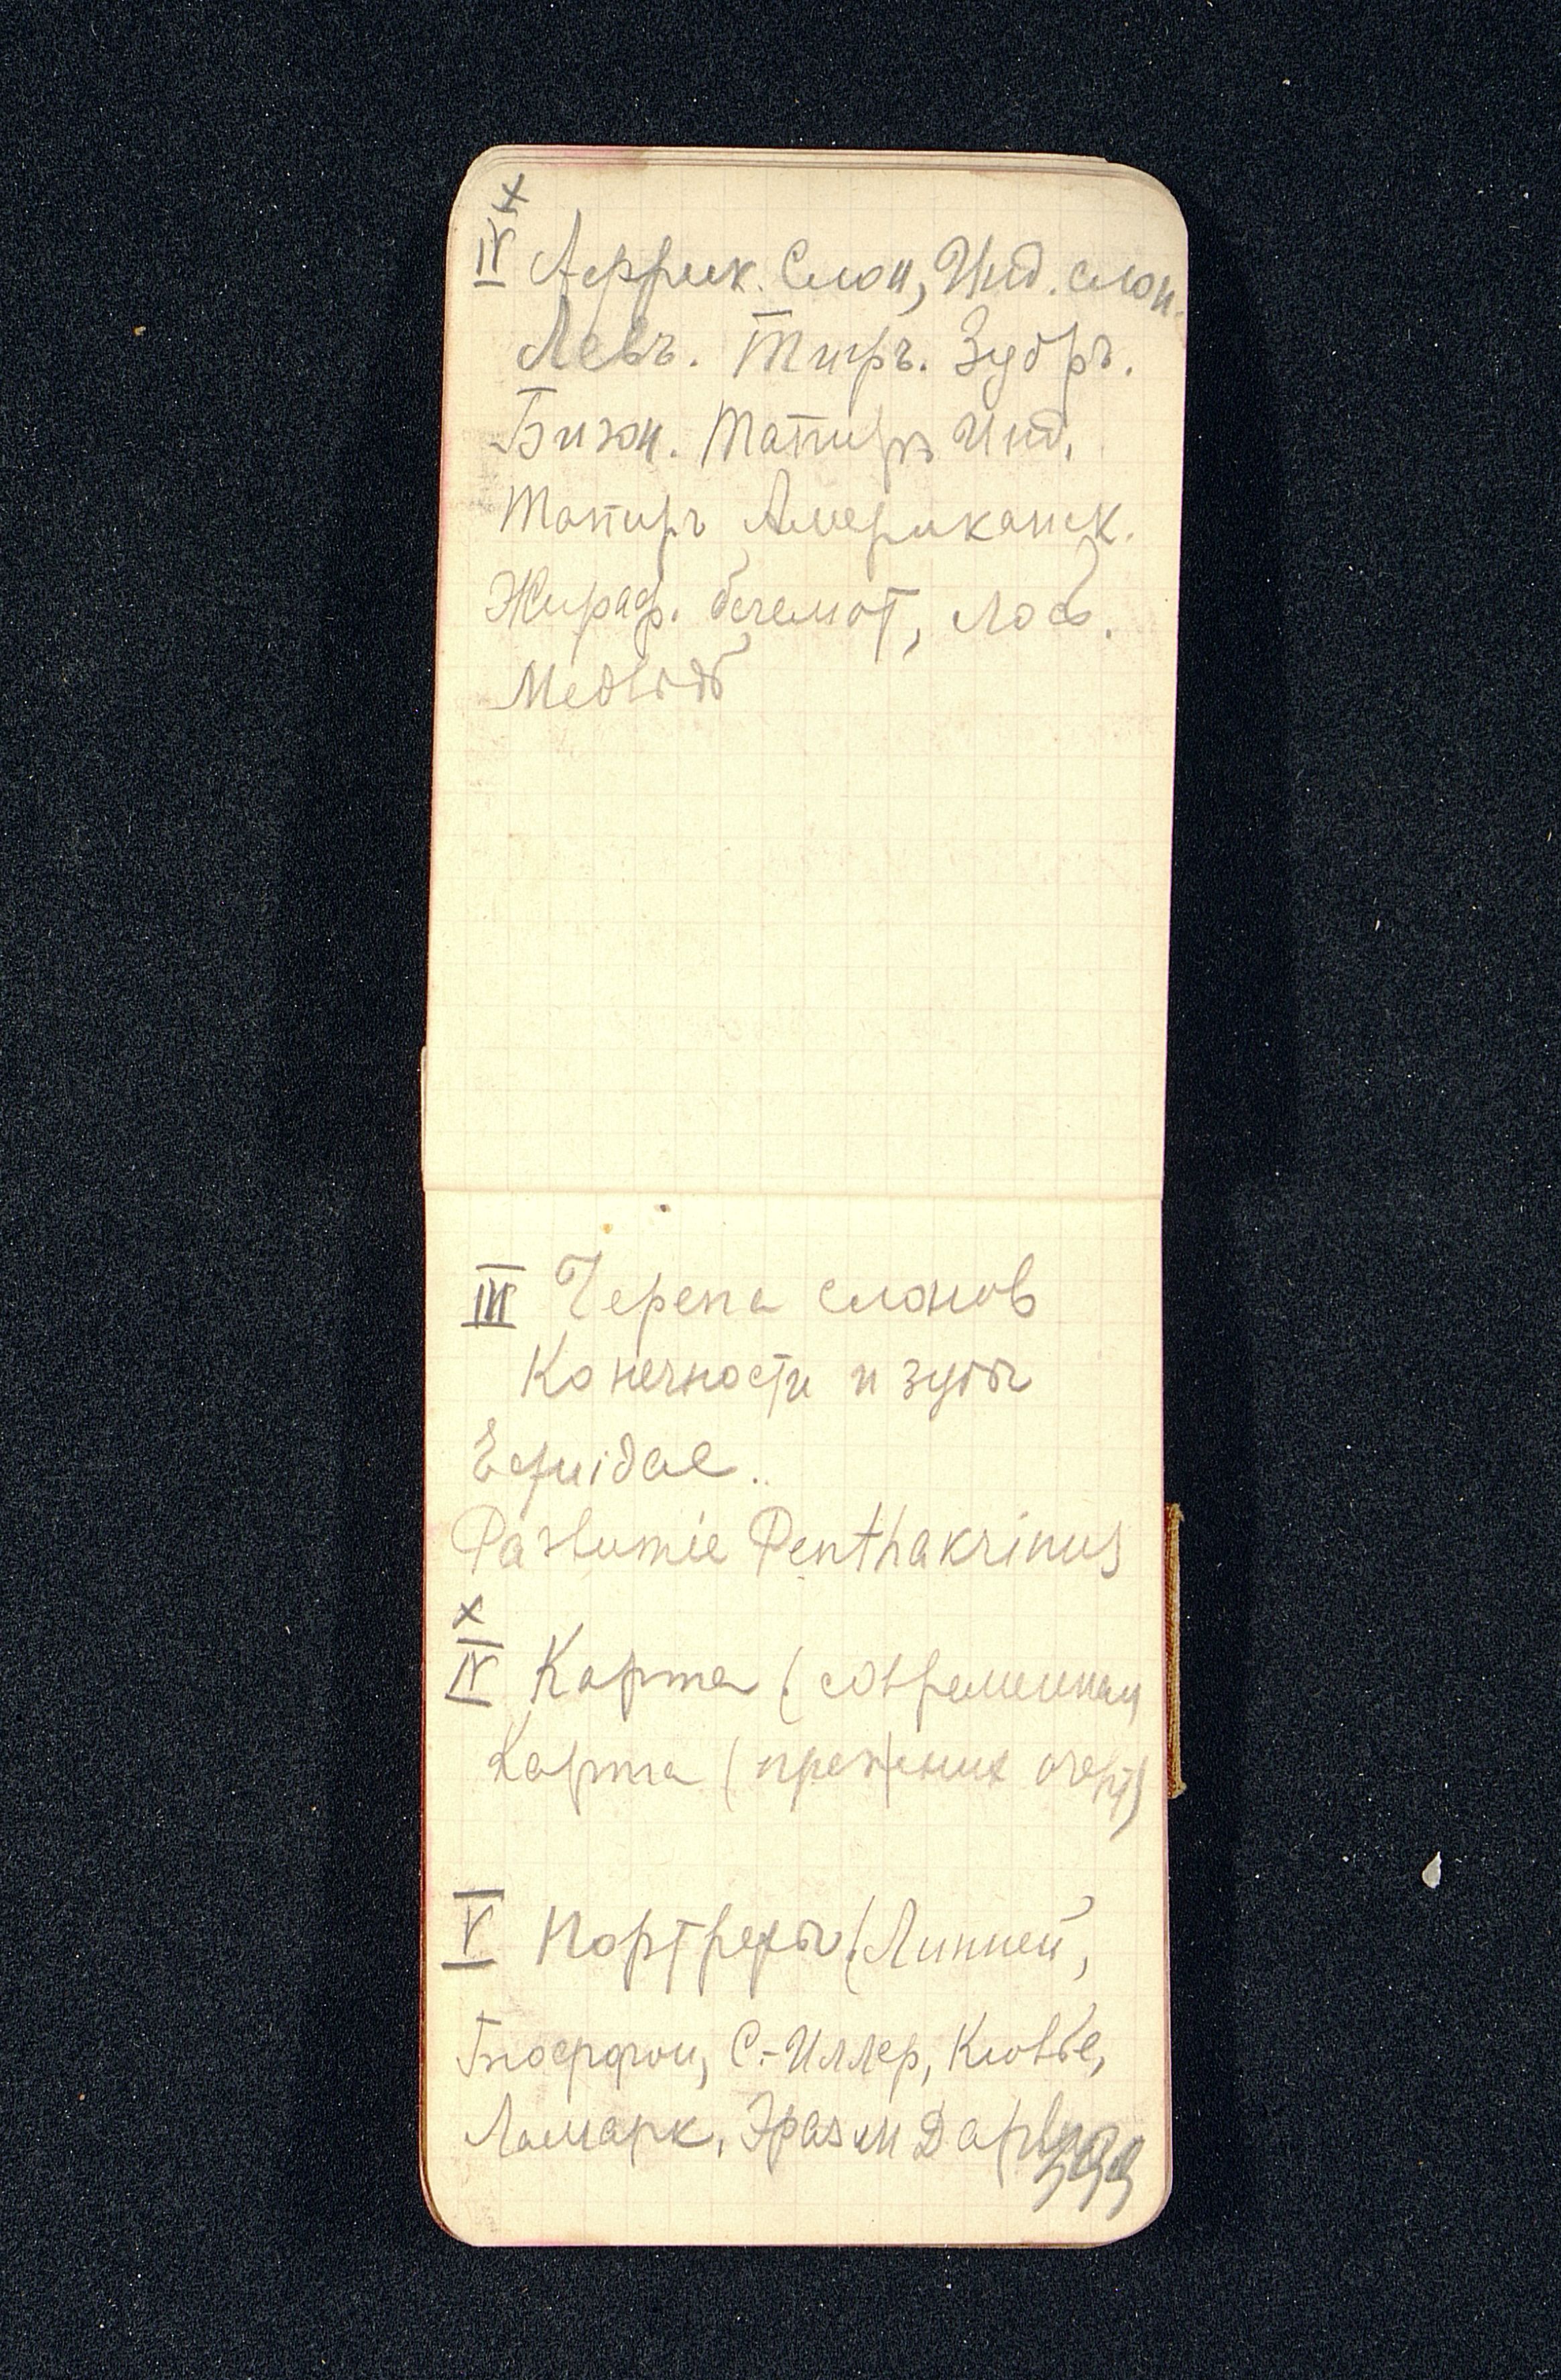 x
IV Африк. Слон, Инд. слон.
Левъ. Тигръ. Зубръ.
Бизон. Тапиръ Инд.
Тапиръ Американск.
Жираф. бегемот, лось.
Медвѣдь
III Черепа слонов
Конечности и зубы
Equidae.
Развитіе Penthakrinus
x
IV Карта (современная
Карта (прежних очерт)
V Портреты (Линней,
Бюффон, С.-Иллер, Кювье,
Ламарк, Эразм Дарвин